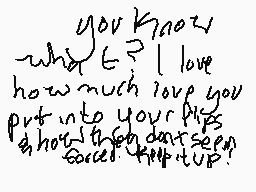 you know
what? I love
how much love you
put into your flips
& how they don't seem
forced. Keep it up!